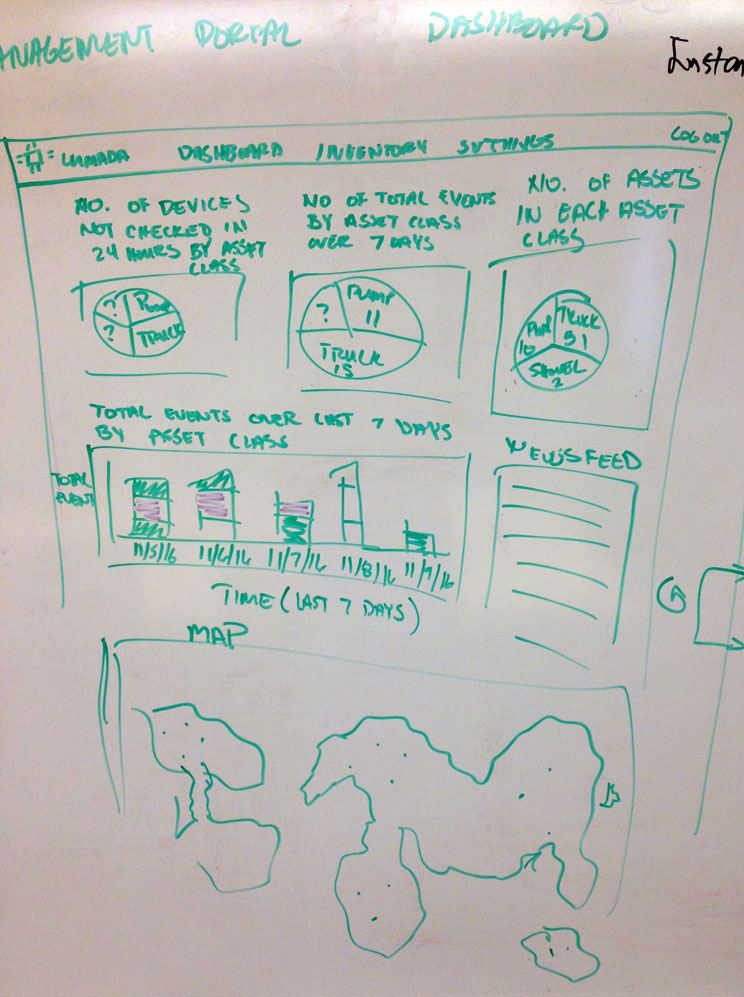 ANAGEMENT PORTAL DASHBOARD
Instan
LUMADA DASHBOARD INVENTORY SETTINGS LOG OUT
NO. OF DEVICES
NOT CHECKED IN
24 HOURS BY ASSET
CLASS
NO OF TOTAL EVENTS
BY ASSET CLASS
OVER 7 DAYS
NO. OF ASSETS
IN EACH ASSET
CLASS
? PUMP
? TRUCK
? PUMP
11
TRUCK
15
PUMP
10
TRUCK
51
SHOVEL
2
TOTAL EVENTS OVER LAST 7 DAYS
BY ASSET CLASS
TOTAL
EVENT
11/5/16 11/6/16 11/7/16 11/8/16 11/9/16
TIME (LAST 7 DAYS)
NEWSFEED
MAP